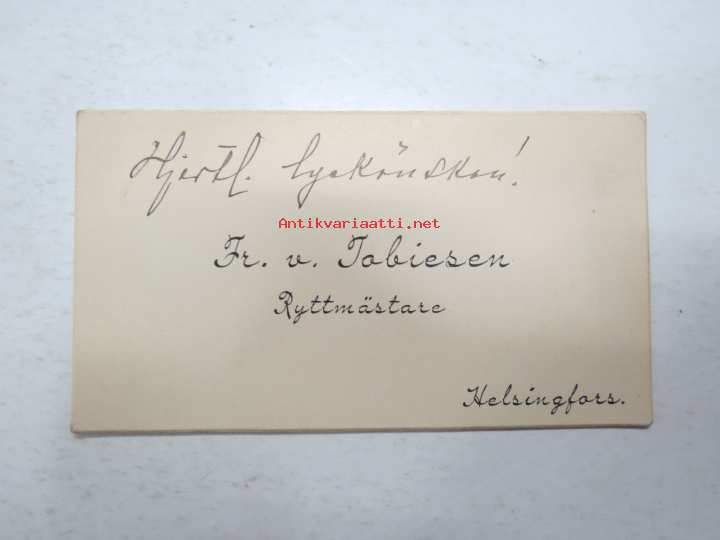 Hjertl. lyckönskan!
Antikvariaatti.net
Fr. v. Tobiesen
Ryttmästare
Helsingfors.